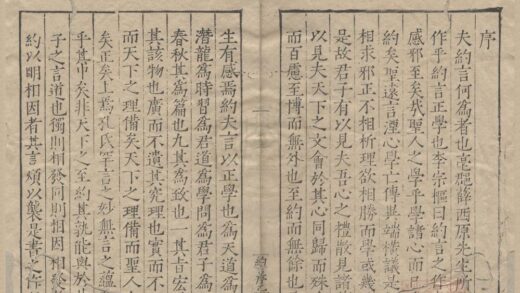 序
夫約言何為者也亳臞薛西原先生所
作乎約言正學也李宗樞曰約言之作
感邪至矣哉聖人之學乎學諸心而已
約矣聖遠言湮心學亡傳異端橫議是
相求邪正不相析理欲相勝而學或幾
是故君子有以見夫吾心之禮散見諸
以見夫天下之文會於其心同歸而殊
而百慮至博而無外也至約而無餘也
生有感焉約夫言以正學也為天道為
潛龍為時習為君道為學問為君子為
春秋其為篇也九其為致也一其旨宏
其該物也廣而不遺其究理也實而不
而天下之理備矣天下之理備而聖人
矣正矣上焉孔氏罕言之妙無言之蘊
乎其中矣非天下之至約其孰能與於
子之言道也獨則相發同則相因相發
約以明相因者其言煩以襲是書之作